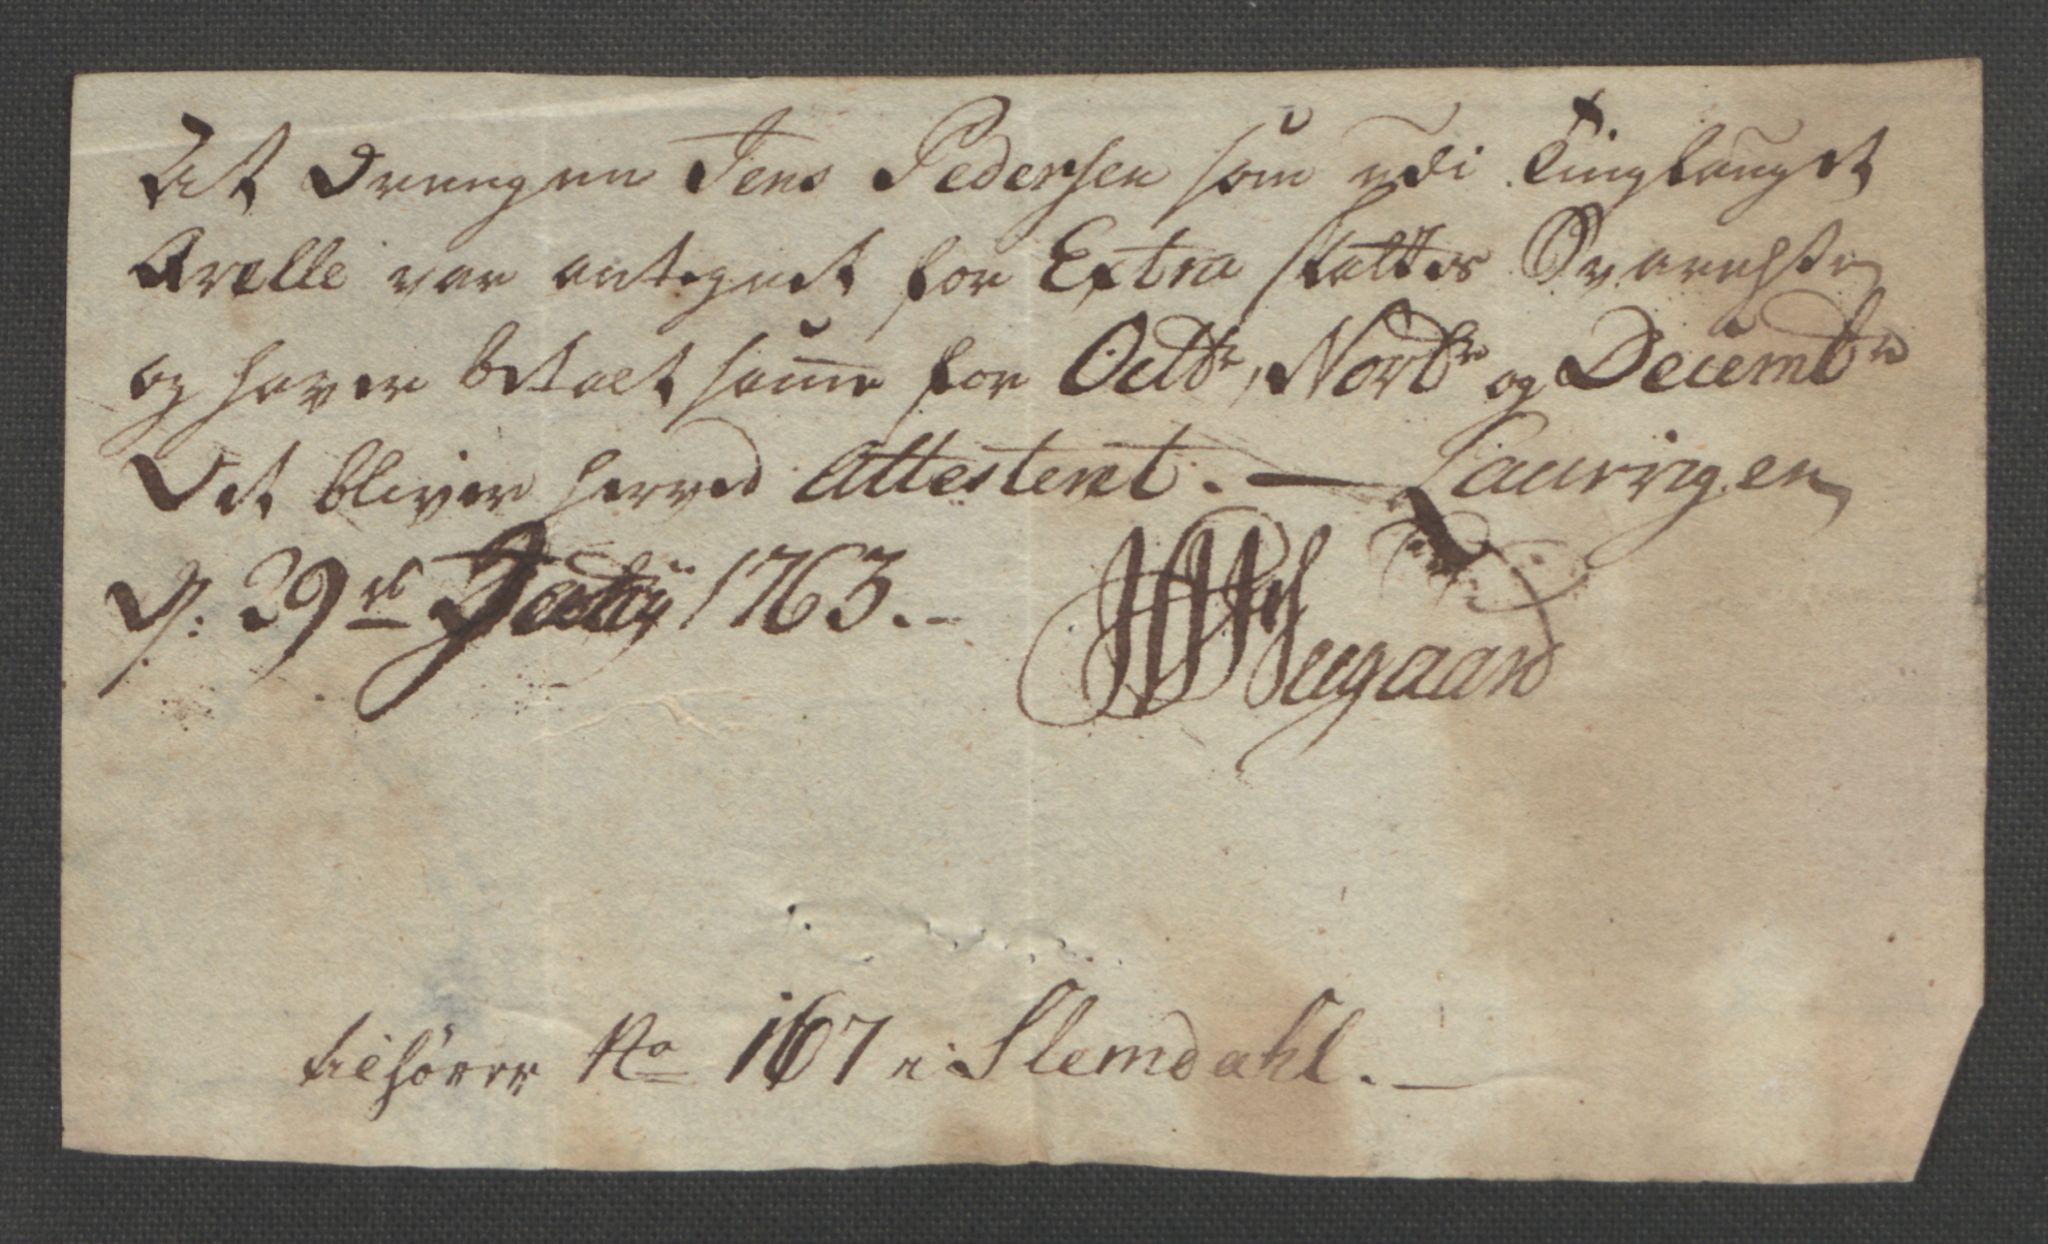 At Drengen Jens Pedersen som udi Tinglauget
Qvelle var antegnet for Extra skattes Svarelse,
og haver betalt samme for Octbr, Novbr og Decembr
Det bliver herved Attesteret. — Laurvigen
d: 29de 1763. –
Seugaard
tilhører No 167 i Slemdahl. —